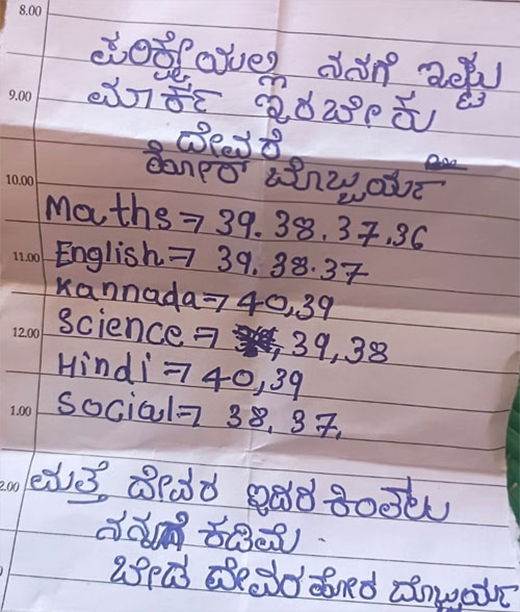 8.00
ಪರಿಕ್ಷೇಯಲ್ಲಿ ನನಗೆ ಇಷ್ಟು
9.00
ಮಾರ್ಕ್ ಇರಬೇಕು
ದೇವರೆ
10.00
ಹೋರ ಬೊಬ್ಬರ್ಯ
Maths ⇒ 39. 38. 37. 36
11.00
English ⇒ 39. 38. 37
Kannada ⇒ 40, 39
12.00
Science ⇒ 39, 38
Hindi ⇒ 40, 39
1.00
Social ⇒ 38, 37,
2.00
ಮತ್ತೆ ದೇವರ ಇದರ ಕಿಂತಲು
ನನ್ನಗೆ ಕಡಿಮೆ
ಬೇಡ ದೇವರ ಹೋರ